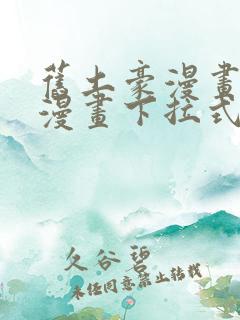 舊土豪漫畫
漫畫下拉式
久谷碧
未经同意禁止转载